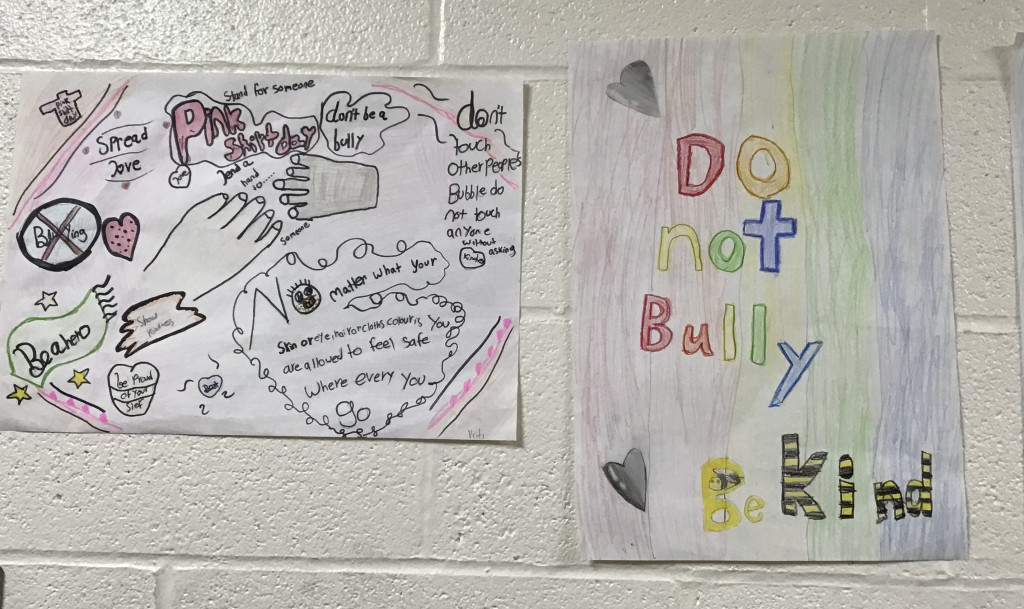 Pink
shirt
day
Spread
love
Stand for someone
Pink
Shirt day
don't be a
bully
love
lend a
hand
to.....
someone
don't
touch
other people's
Bubble do
not touch
anyone
without
asking
Kind
Bullying
Be a hero
Show
kindness
No
Matter what your
Skin or eye, hair or cloths colour is You
are allowed to feel safe
Where every you
go
Be Proud
of Your
Self
DO
not
Bully
Be Kind